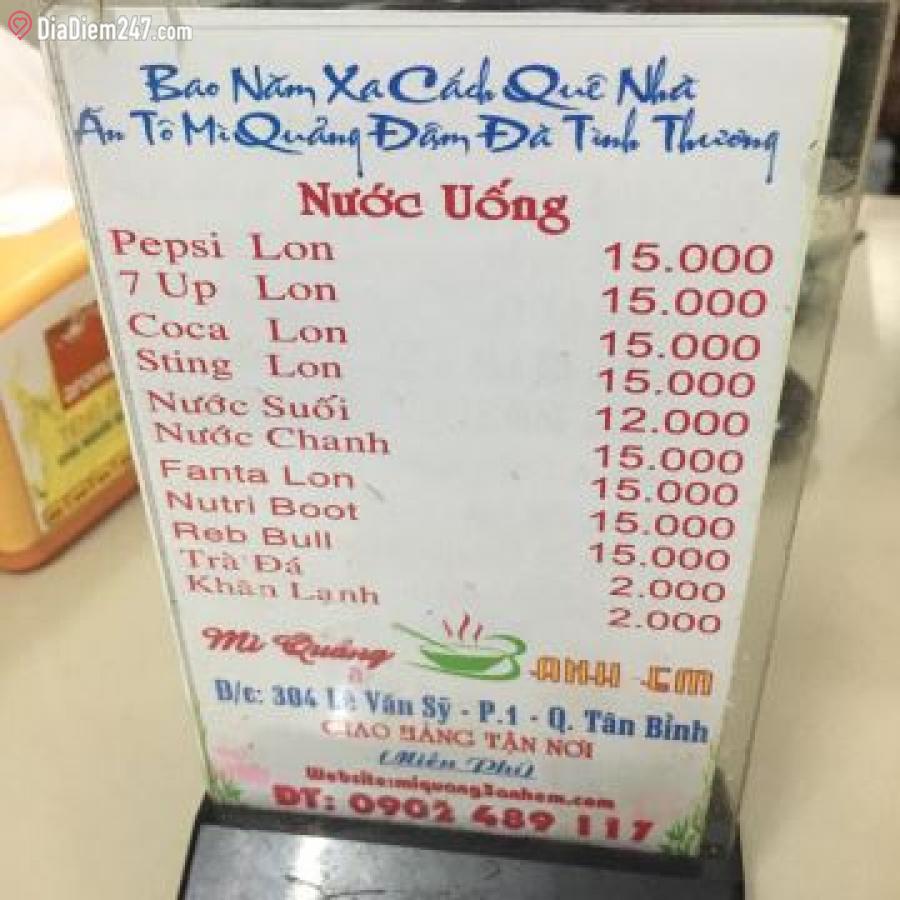 DiaDiem247.com
Bao Năm Xa Cách Quê Nhà
Ăn Tô Mì Quảng Đậm Đà Tình Thương
Nước Uống
Pepsi Lon 15.000
7 Up Lon 15.000
Coca Lon 15.000
Sting Lon 15.000
Nước Suối 12.000
Nước Chanh 15.000
Fanta Lon 15.000
Nutri Boot 15.000
Reb Bull 15.000
Trà Đá 2.000
Khăn Lạnh 2.000
Mì Quảng 3 ANH EM
Đ/c: 304 Lê Văn Sỹ - P.1 - Q. Tân Bình
GIAO HÀNG TẬN NƠI
(Miễn Phí)
Website:miquang3anhem.com
ĐT: 0902 489 117